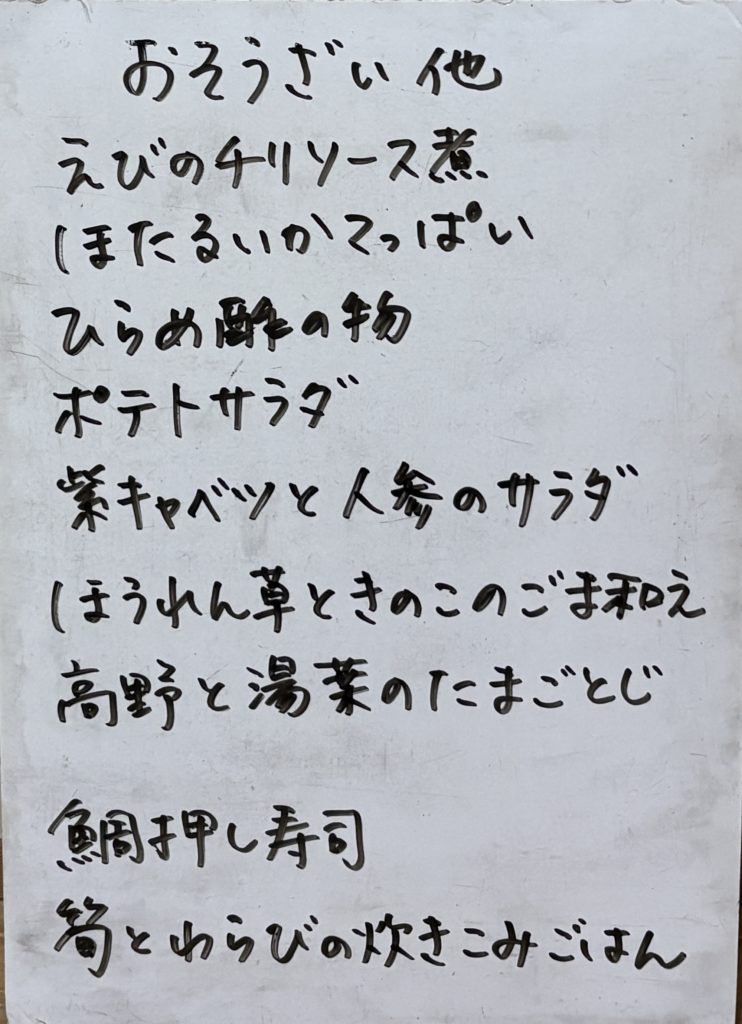 おそうざい 他
えびのチリソース煮
ほたるいかてっぱい
ひらめ酢の物
ポテトサラダ
紫キャベツと人参のサラダ
ほうれん草ときのこのごま和え
高野と湯葉のたまごとじ
鯛押し寿司
筍とわらびの炊きこみごはん